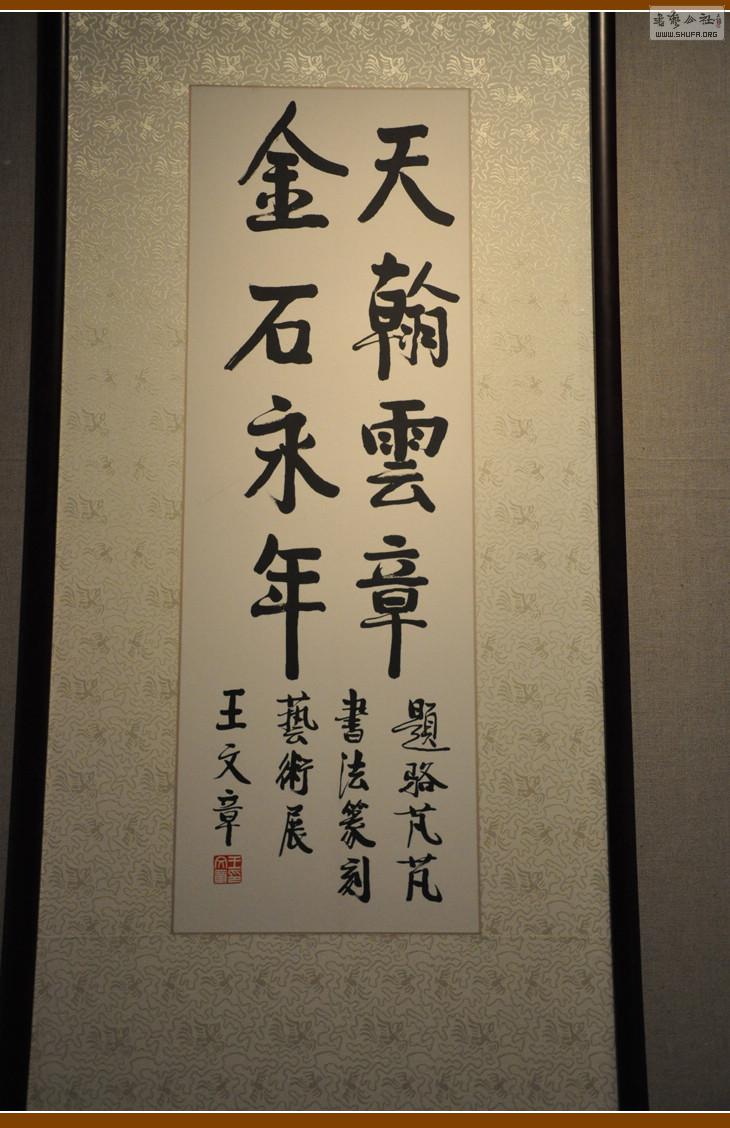 天翰雲章
金石永年
題骆芃芃
書法篆刻
藝術展
王文章
書藝公社
WWW.SHUFA.ORG